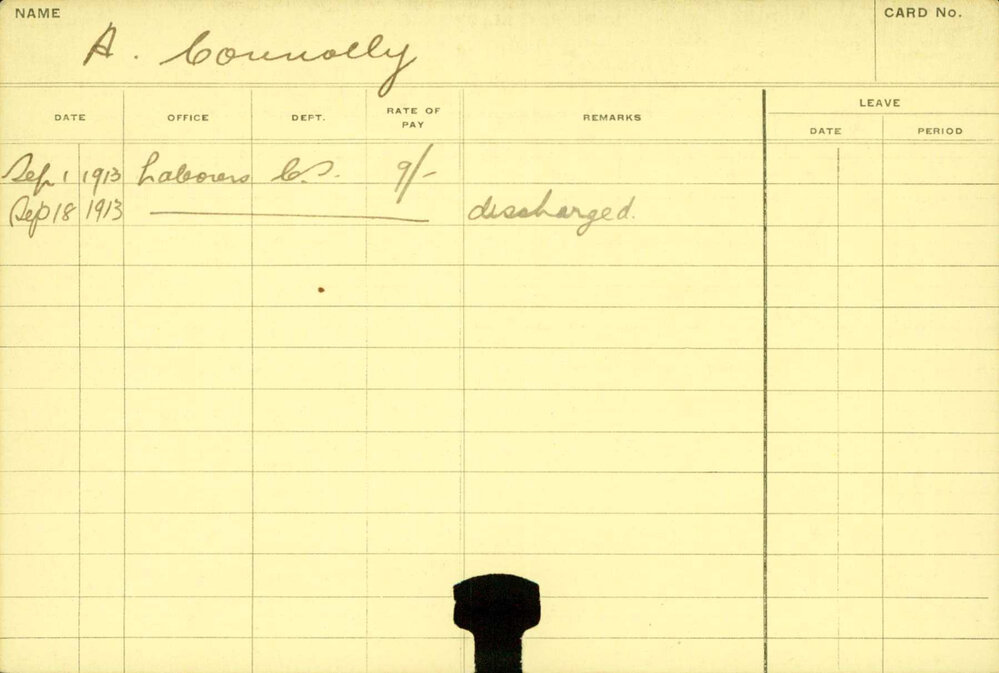 NAME
CARD No.
A. Connolly
DATE OFFICE DEPT. RATE OF PAY REMARKS LEAVE
DATE PERIOD
Sep 1 1913 Laborers C.S. 9/-
Sep 18 1913 discharged.